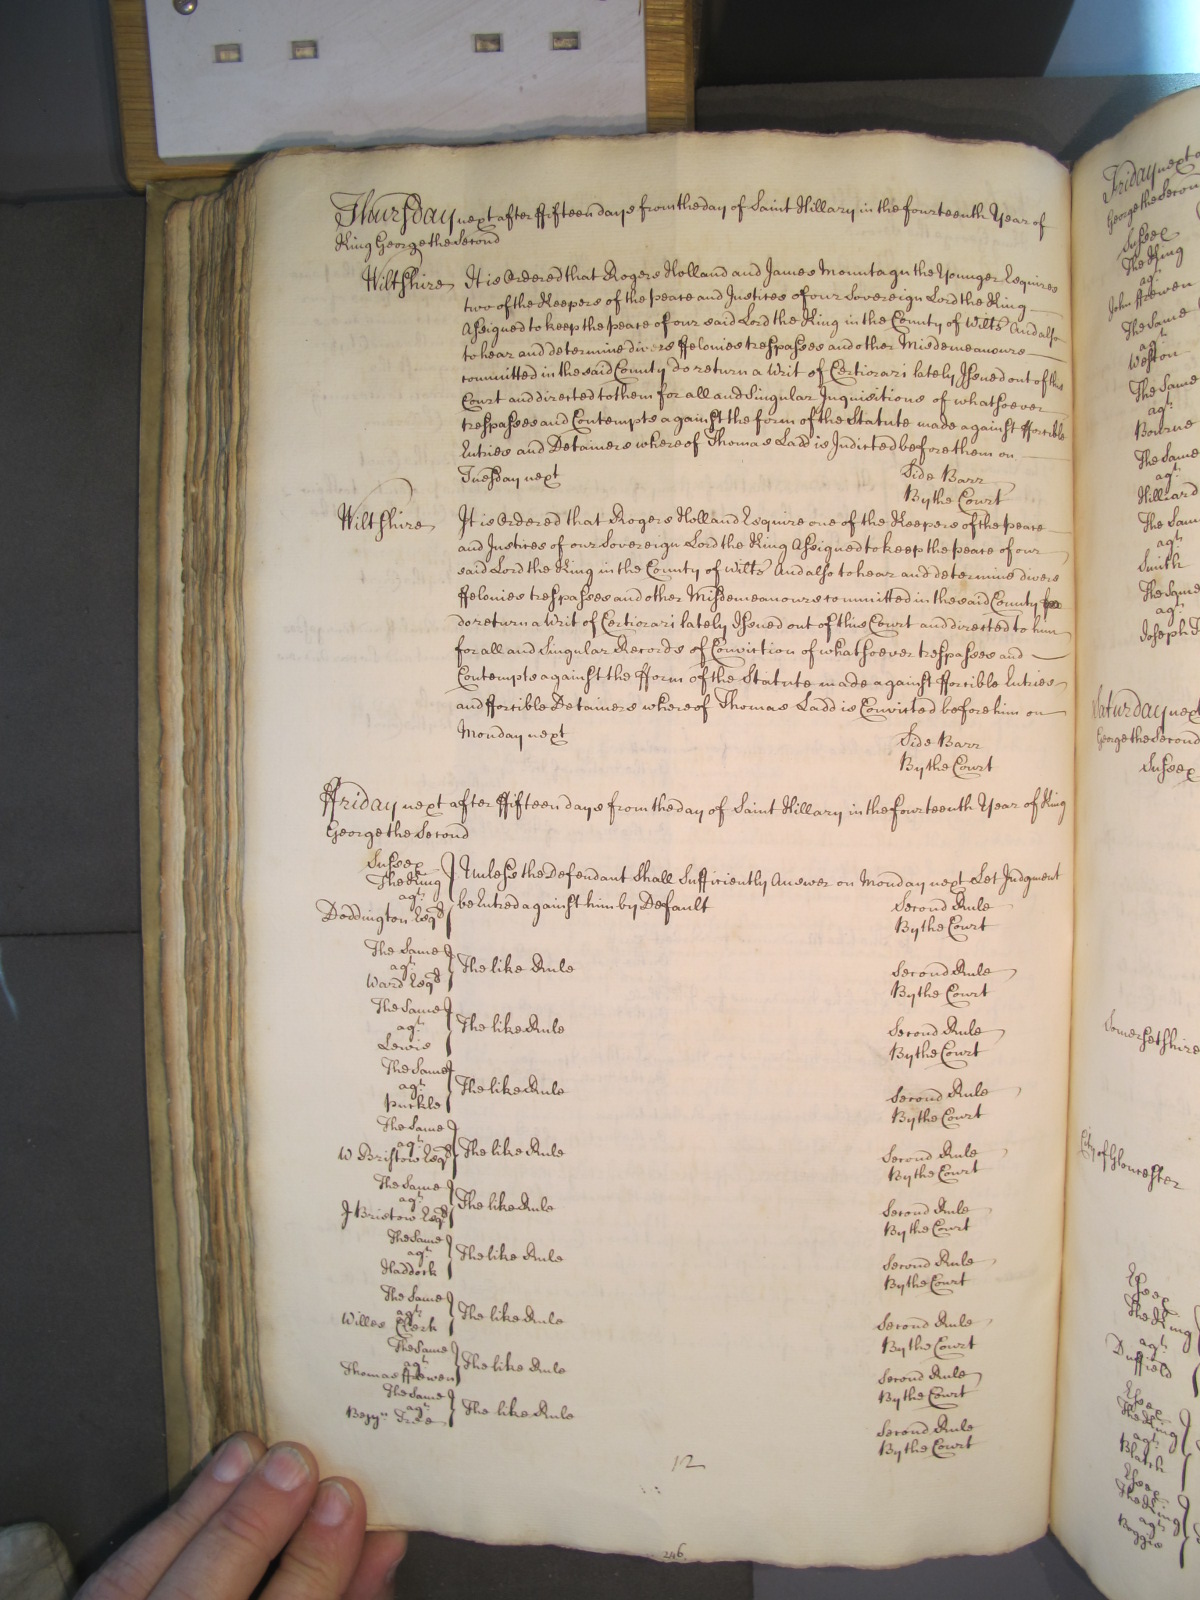 Thursday next after ffifteen days from the day of Saint Hillary in the fourteenth Year of
King George the Second
Wiltshire It is Ordered that Rogers Holland and James Mountagu the Younger Esquires
two of the Keepers of the peace and Justices of our Sovereign Lord the King
Assigned to keep the peace of our said Lord the King in the County of Wilts And also
to hear and determine divers ffelonies trespasses and other Misdemeanours
committed in the said County do return a Writ of Certiorari lately Issued out of this
Court and directed to them for all and Singular Inquisitions of whatsoever
trespasses and Contempts against the form of the Statute made against fforcible
Entries and Detainers whereof Thomas Ladd is Indicted before them on
Tuesday next
Side Barr
By the Court
Wiltshire It is Ordered that Rogers Holland Esquire one of the Keepers of the peace
and Justices of our Sovereign Lord the King Assigned to keep the peace of our
said Lord the King in the County of Wilts And also to hear and determine divers
ffelonies trespasses and other Misdemeanours committed in the said County
do return a Writ of Certiorari lately Issued out of this Court and directed to him
for all and Singular Records of Conviction of whatsoever trespasses and
Contempts against the fform of the Statute made against fforcible Entries
and fforcible Detainers whereof Thomas Ladd is Convicted before him on
Monday next
Side Barr
By the Court
ffriday next after ffifteen days from the day of Saint Hillary in the fourteenth Year of King
George the Second
Sussex
The King
agt
Doddington Esqr
Unless the Defendant Shall Sufficiently Answer on Monday next Let Judgment
be Entred against him by Default
Second Rule
By the Court
The Same
agt
Ward Esqr
The like Rule
Second Rule
By the Court
The Same
agt
Lewis
The like Rule
Second Rule
By the Court
The Same
agt
Puckle
The like Rule
Second Rule
By the Court
The Same
agt
W Bristow Esqr
The like Rule
Second Rule
By the Court
The Same
agt
J Bristow Esqr
The like Rule
Second Rule
By the Court
The Same
agt
Haddock
The like Rule
Second Rule
By the Court
The Same
agt
Willes Clerk
The like Rule
Second Rule
By the Court
The Same
agt
Thomas ffrewen
The like Rule
Second Rule
By the Court
The Same
agt
Benjn Tree
The like Rule
Second Rule
By the Court
12
246
Friday next
George the Second
Sussex
The King
agt
John ffrewen
The Same
agt
Weston
The Same
agt
Bourne
The Same
agt
Hilliard
The Same
agt
Smith
The Same
agt
Joseph
Saturday next
George the Second
Sussex
Somersetshire
City of Gloucester
Essex
The King
agt
Duffield
Essex
The King
agt
Blatch
Essex
The King
agt